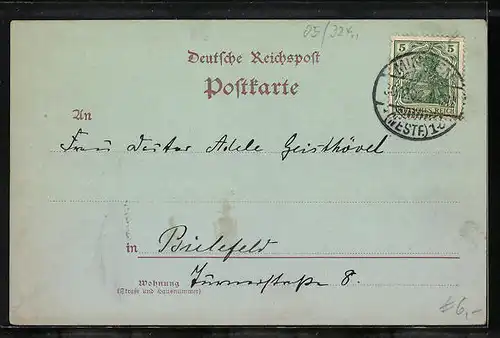 Deutsche Reichspost
Postkarte
5 5
(WESTF.)
REICH
An
Frau Doctor Adele Geisthövel
in Bielefeld
Wohnung
(Straße und Hausnummer)
Turnerstraße 8.
6,-